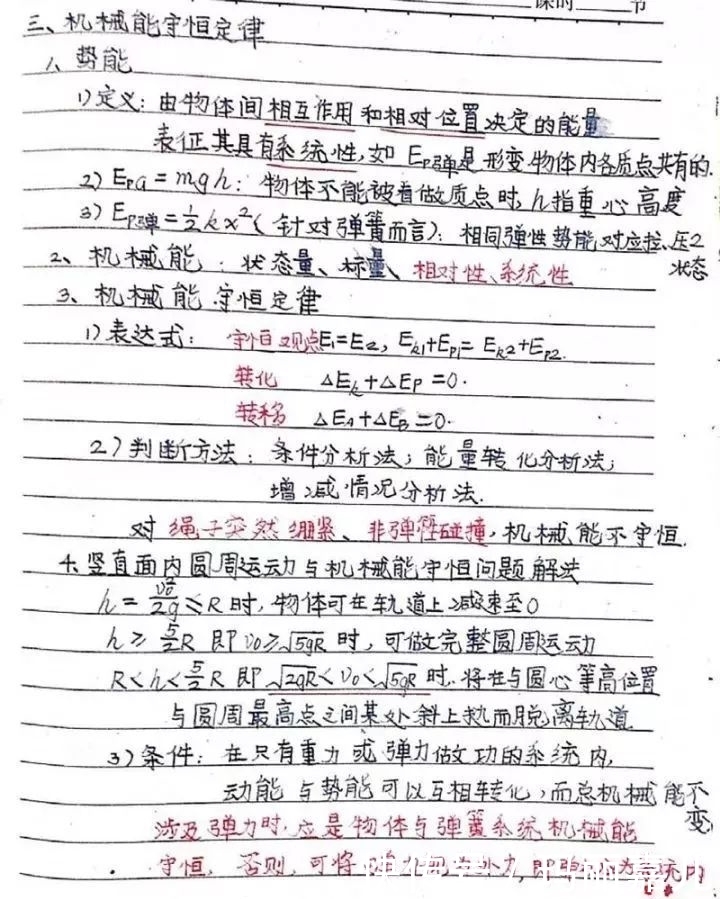 课时 节
三、机械能守恒定律
1、势能
1)定义：由物体间相互作用和相对位置决定的能量
表征其具有系统性，如 Ep弹是形变物体内各质点共有的.
2) EpG=mgh：物体不能被看做质点时，h指重心高度
3) Ep弹=½kx²(针对弹簧而言)：相同弹性势能对应拉、压2
状态
2、机械能：状态量、标量、相对性、系统性
3、机械能守恒定律
1)表达式：守恒观点E1=E2, Ek1+Ep1=Ek2+Ep2.
转化 ΔEk+ΔEp=0.
转移 ΔEA+ΔEB=0.
2)判断方法：条件分析法；能量转化分析法；
增减情况分析法.
对绳子突然绷紧、非弹性碰撞，机械能不守恒.
4.竖直面内圆周运动与机械能守恒问题解法
h=v0²/2g≤R时，物体可在轨道上减速至0
h≥5/2R 即v0≥√5gR 时，可做完整圆周运动
R<h<5/2R 即√2gR<v0<√5gR 时.将在与圆心等高位置
与圆周最高点之间某处斜上抛而脱离轨道
3)条件：在只有重力或弹力做功的系统内，
动能与势能可以互相转化，而总机械能不
变
涉及弹力时，应是物体与弹簧系统机械能
守恒，否则，可将